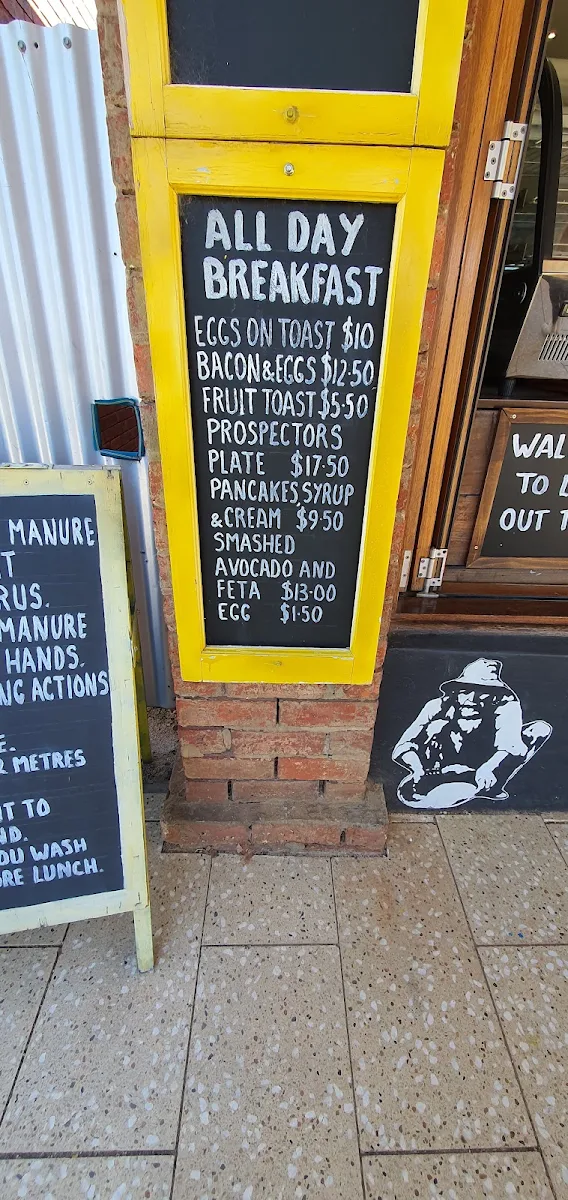 ALL DAY
BREAKFAST
EGGS ON TOAST $10
BACON & EGGS $12.50
FRUIT TOAST $5.50
PROSPECTORS
PLATE $17.50
PANCAKES, SYRUP
& CREAM $9.50
SMASHED
AVOCADO AND
FETA $13.00
EGG $1.50
MANURE
MANURE
HANDS.
ACTIONS
2 METRES
TO
WASH
LUNCH.
TO
OUT